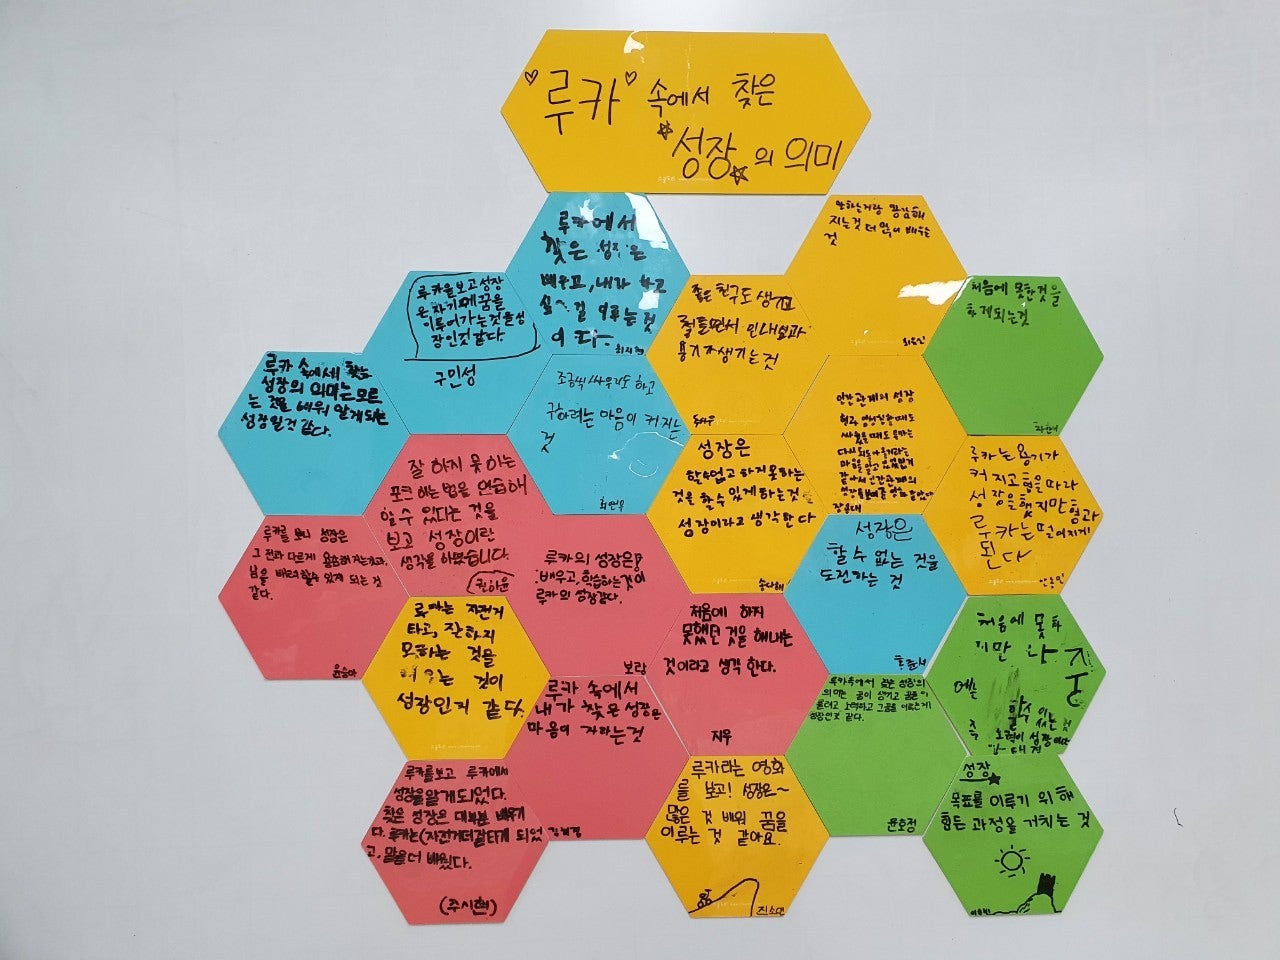 ♡루카♡ 속에서 찾은
☆성장☆의 의미
루카에서
찾은 성장은
배우고, 내가 하고
싶은 걸 이루는것
이다-
안하는거랑 용감해
지는것 더 많이 배우는
것
루카을보고성장
은 자기에꿈을
이루어가는것을성
장인것 같다.
구민성
좋은 친구도 생기고
힘들면서 인내심과
용기가생기는것
처음에 못한것을
하게되는것
루카 속에서 찾는
성장의 의미는모르
는 것을 배워 알게되는
성장일것 같다.
조금씩 싸우기도 하고
구하려는 마음이 커지는
것
인간관계의 성장
성장은
할수없고 하지못하는
것을 할수있게하는것을
성장이라고 생각한다
송다혜
루카는 용기가
커지고 형을따라
성장을했지만 형과
루카는 떨어지게
된다
잘 하지 못하는
포크 하는 법을 연습해
할 수 있다는 것을
보고 성장이란
생각을 하였습니다.
권하윤
루카를 보니 성장은
그 전과 다르게 용감해지는거고,
남을 배려할수 있게 되는 것
같다.
윤승아
루카의 성장은!
배우고, 학습하는것이
루카의 성장같다.
보람
성장은
할 수 없는 것을
도전하는 것
루카는 자전거
타고, 잘하지
모하는 것을
배우는 것이
성장인거 같다.
처음에 하지
못했던 것을 해내는
것이라고 생각 한다.
지우
처음에 못하
지만 나중
에는
할수 있는 것
루카 속에서
내가 찾은 성장은
마음이 자라는것
루카속에서 찾은 성장의
의미는 꿈이 생기고 꿈을 이
룰려고 노력하고 그꿈을 이루는게
성장인것 같다.
윤호정
루카를보고 루카에서
성장을알게되었다.
찾은 성장은 대부분 배우기
다. 루카는(자전거더잘타게 되었
고, 말을더 배웠다.
(주시현)
루카라는 영화
를 보고! 성장은~
많은 것 배워 꿈을
이루는 것 같아요.
성장☆
목표를 이루기 위해
힘든 과정을 거치는 것